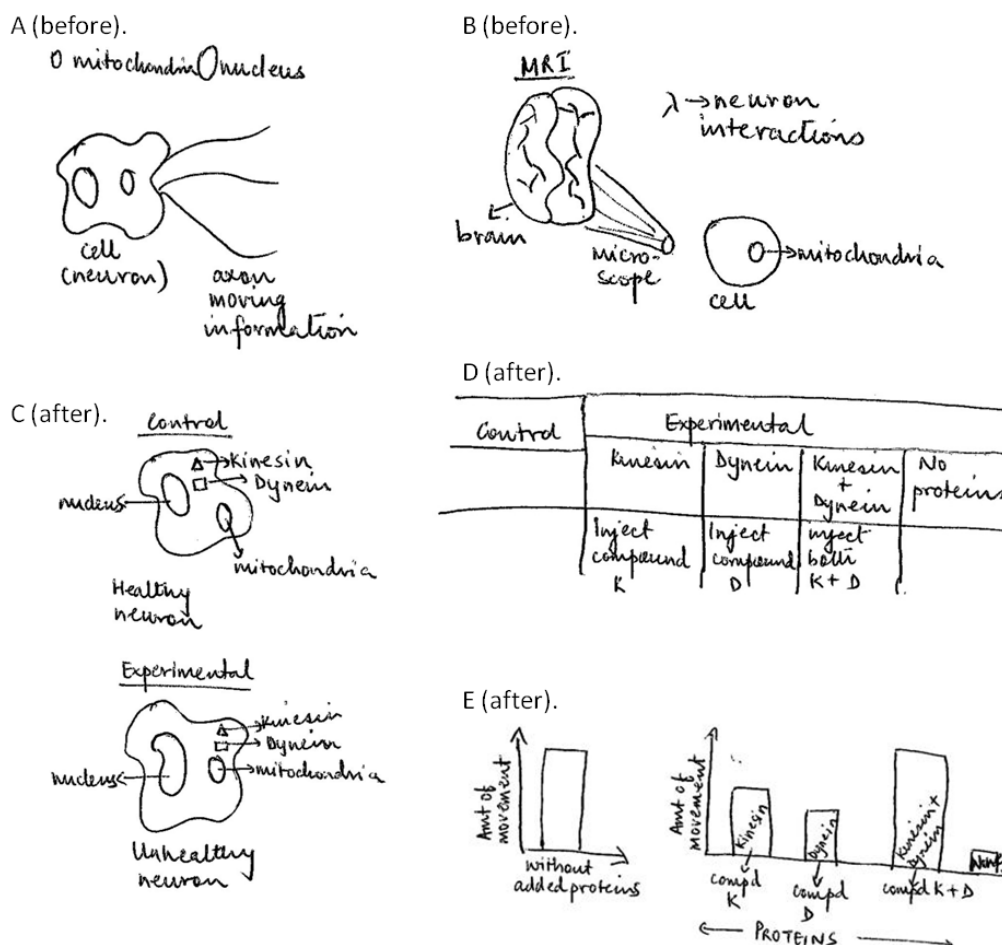 A (before).
O mitochondria O nucleus
cell
(neuron)
axon
moving
information
B (before).
MRI
λ → neuron
interactions
brain
micro-
scope
mitochondria
cell
C (after).
Control
Kinesin
Dynein
nucleus
mitochondria
Healthy
neuron
Experimental
Kinesin
Dynein
mitochondria
nucleus
Unhealthy
neuron
D (after).
Control
Experimental
Kinesin
Dynein
Kinesin
+
Dynein
No
proteins
Inject
compound
K
Inject
compound
D
inject
both
K + D
E (after).
Amt of
movement
without
added proteins
Amt of
movement
Kinesin
Dynein
Kinesin +
Dynein
None
compd
K
compd
D
compd K + D
← PROTEINS →